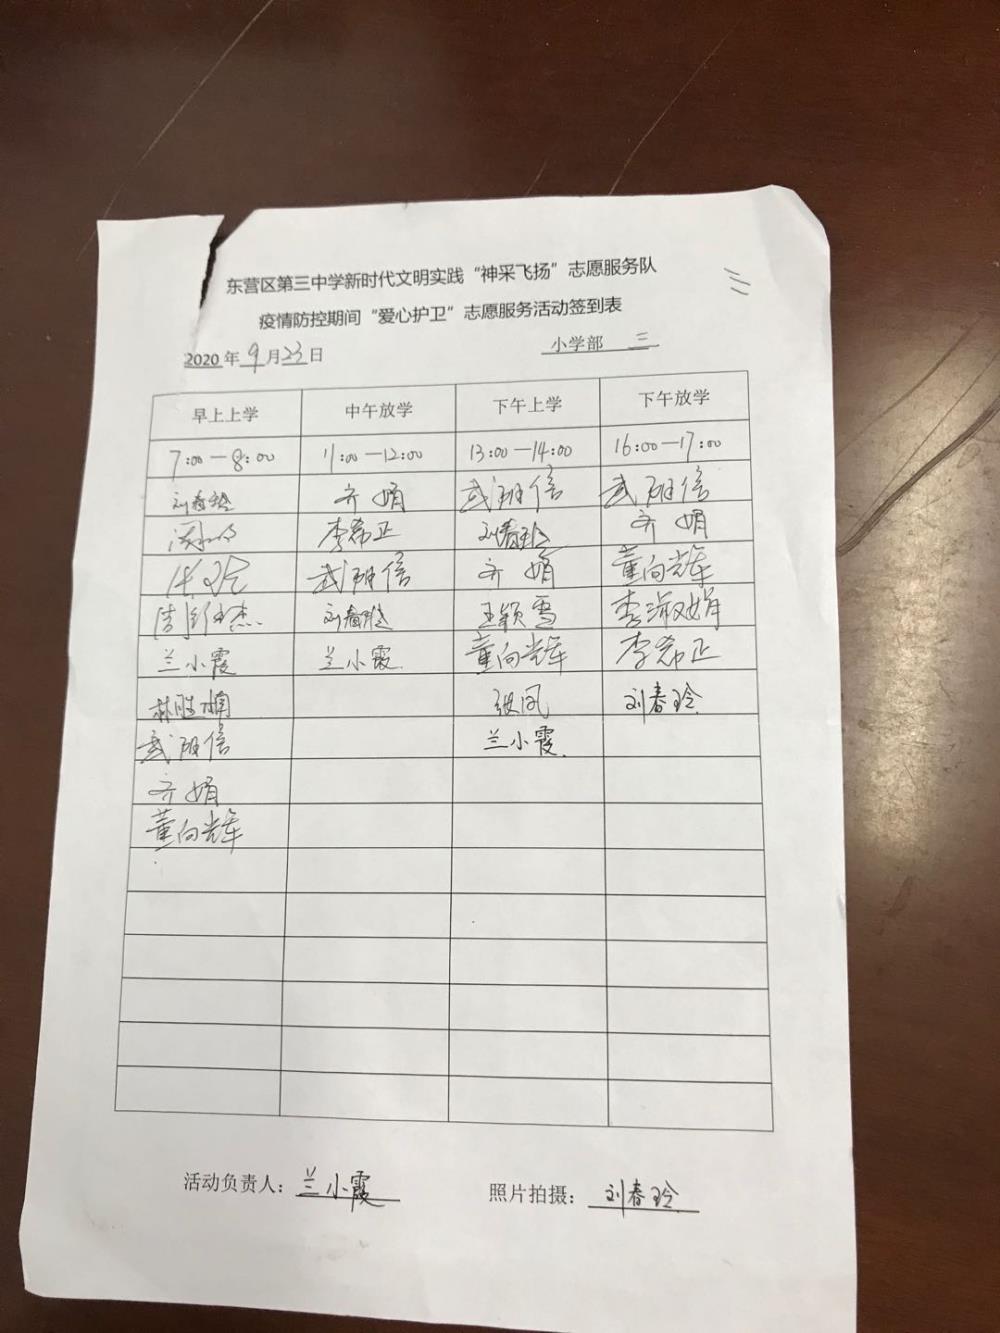 东营区第三中学新时代文明实践“神采飞扬”志愿服务队
三
疫情防控期间“爱心护卫”志愿服务活动签到表
2020 年 9 月 23 日 小学部 三
早上上学 中午放学 下午上学 下午放学
7:00—8:00 11:00—12:00 13:00—14:00 16:00—17:00
刘春玲 齐娟 武班信 武班信
李希正 刘春玲 齐娟
武班信 齐娟 董向辉
刘春玲 王颖雪 李淑娟
兰小霞 兰小霞 董向辉 李希正
林胜楠 张凤 刘春玲
武班信 兰小霞
齐娟
董向辉
活动负责人：兰小霞 照片拍摄：刘春玲